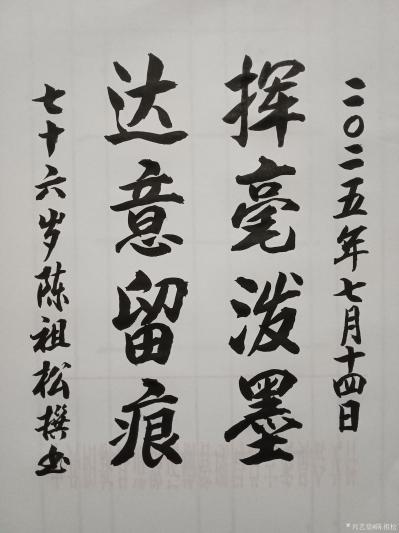 二〇二五年七月十四日
挥毫泼墨
达意留痕
七十六岁陈祖松撰书